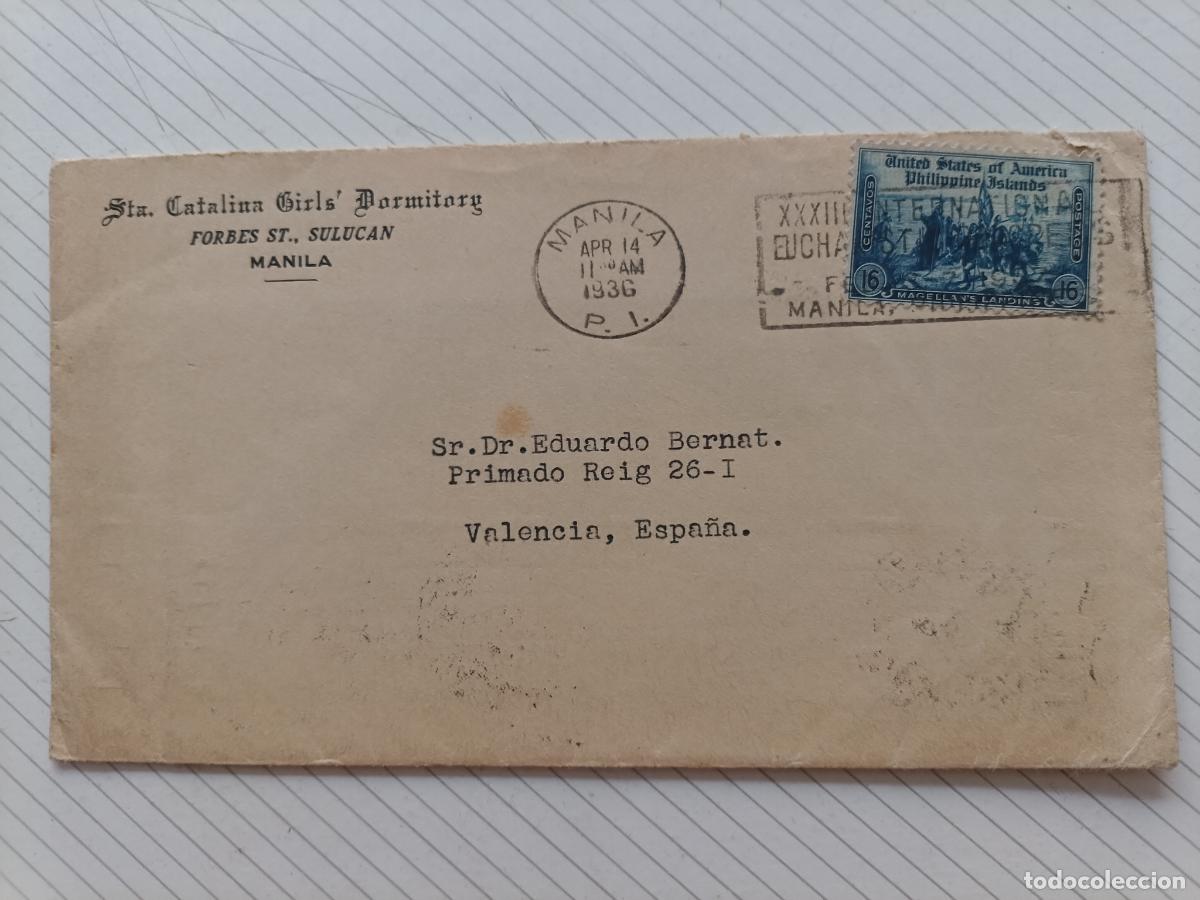 Sta. Catalina Girls' Dormitory
FORBES ST., SULUCAN
MANILA
MANILA
APR 14
11 AM
1936
P. I.
XXXIII INTERNATIONAL
EUCHARISTIC CONGRESS
MANILA,
United States of America
Philippine Islands
CENTAVOS
POSTAGE
16
16
MAGELLAN'S LANDING
Sr.Dr.Eduardo Bernat.
Primado Reig 26-I
Valencia, España.
todocoleccion